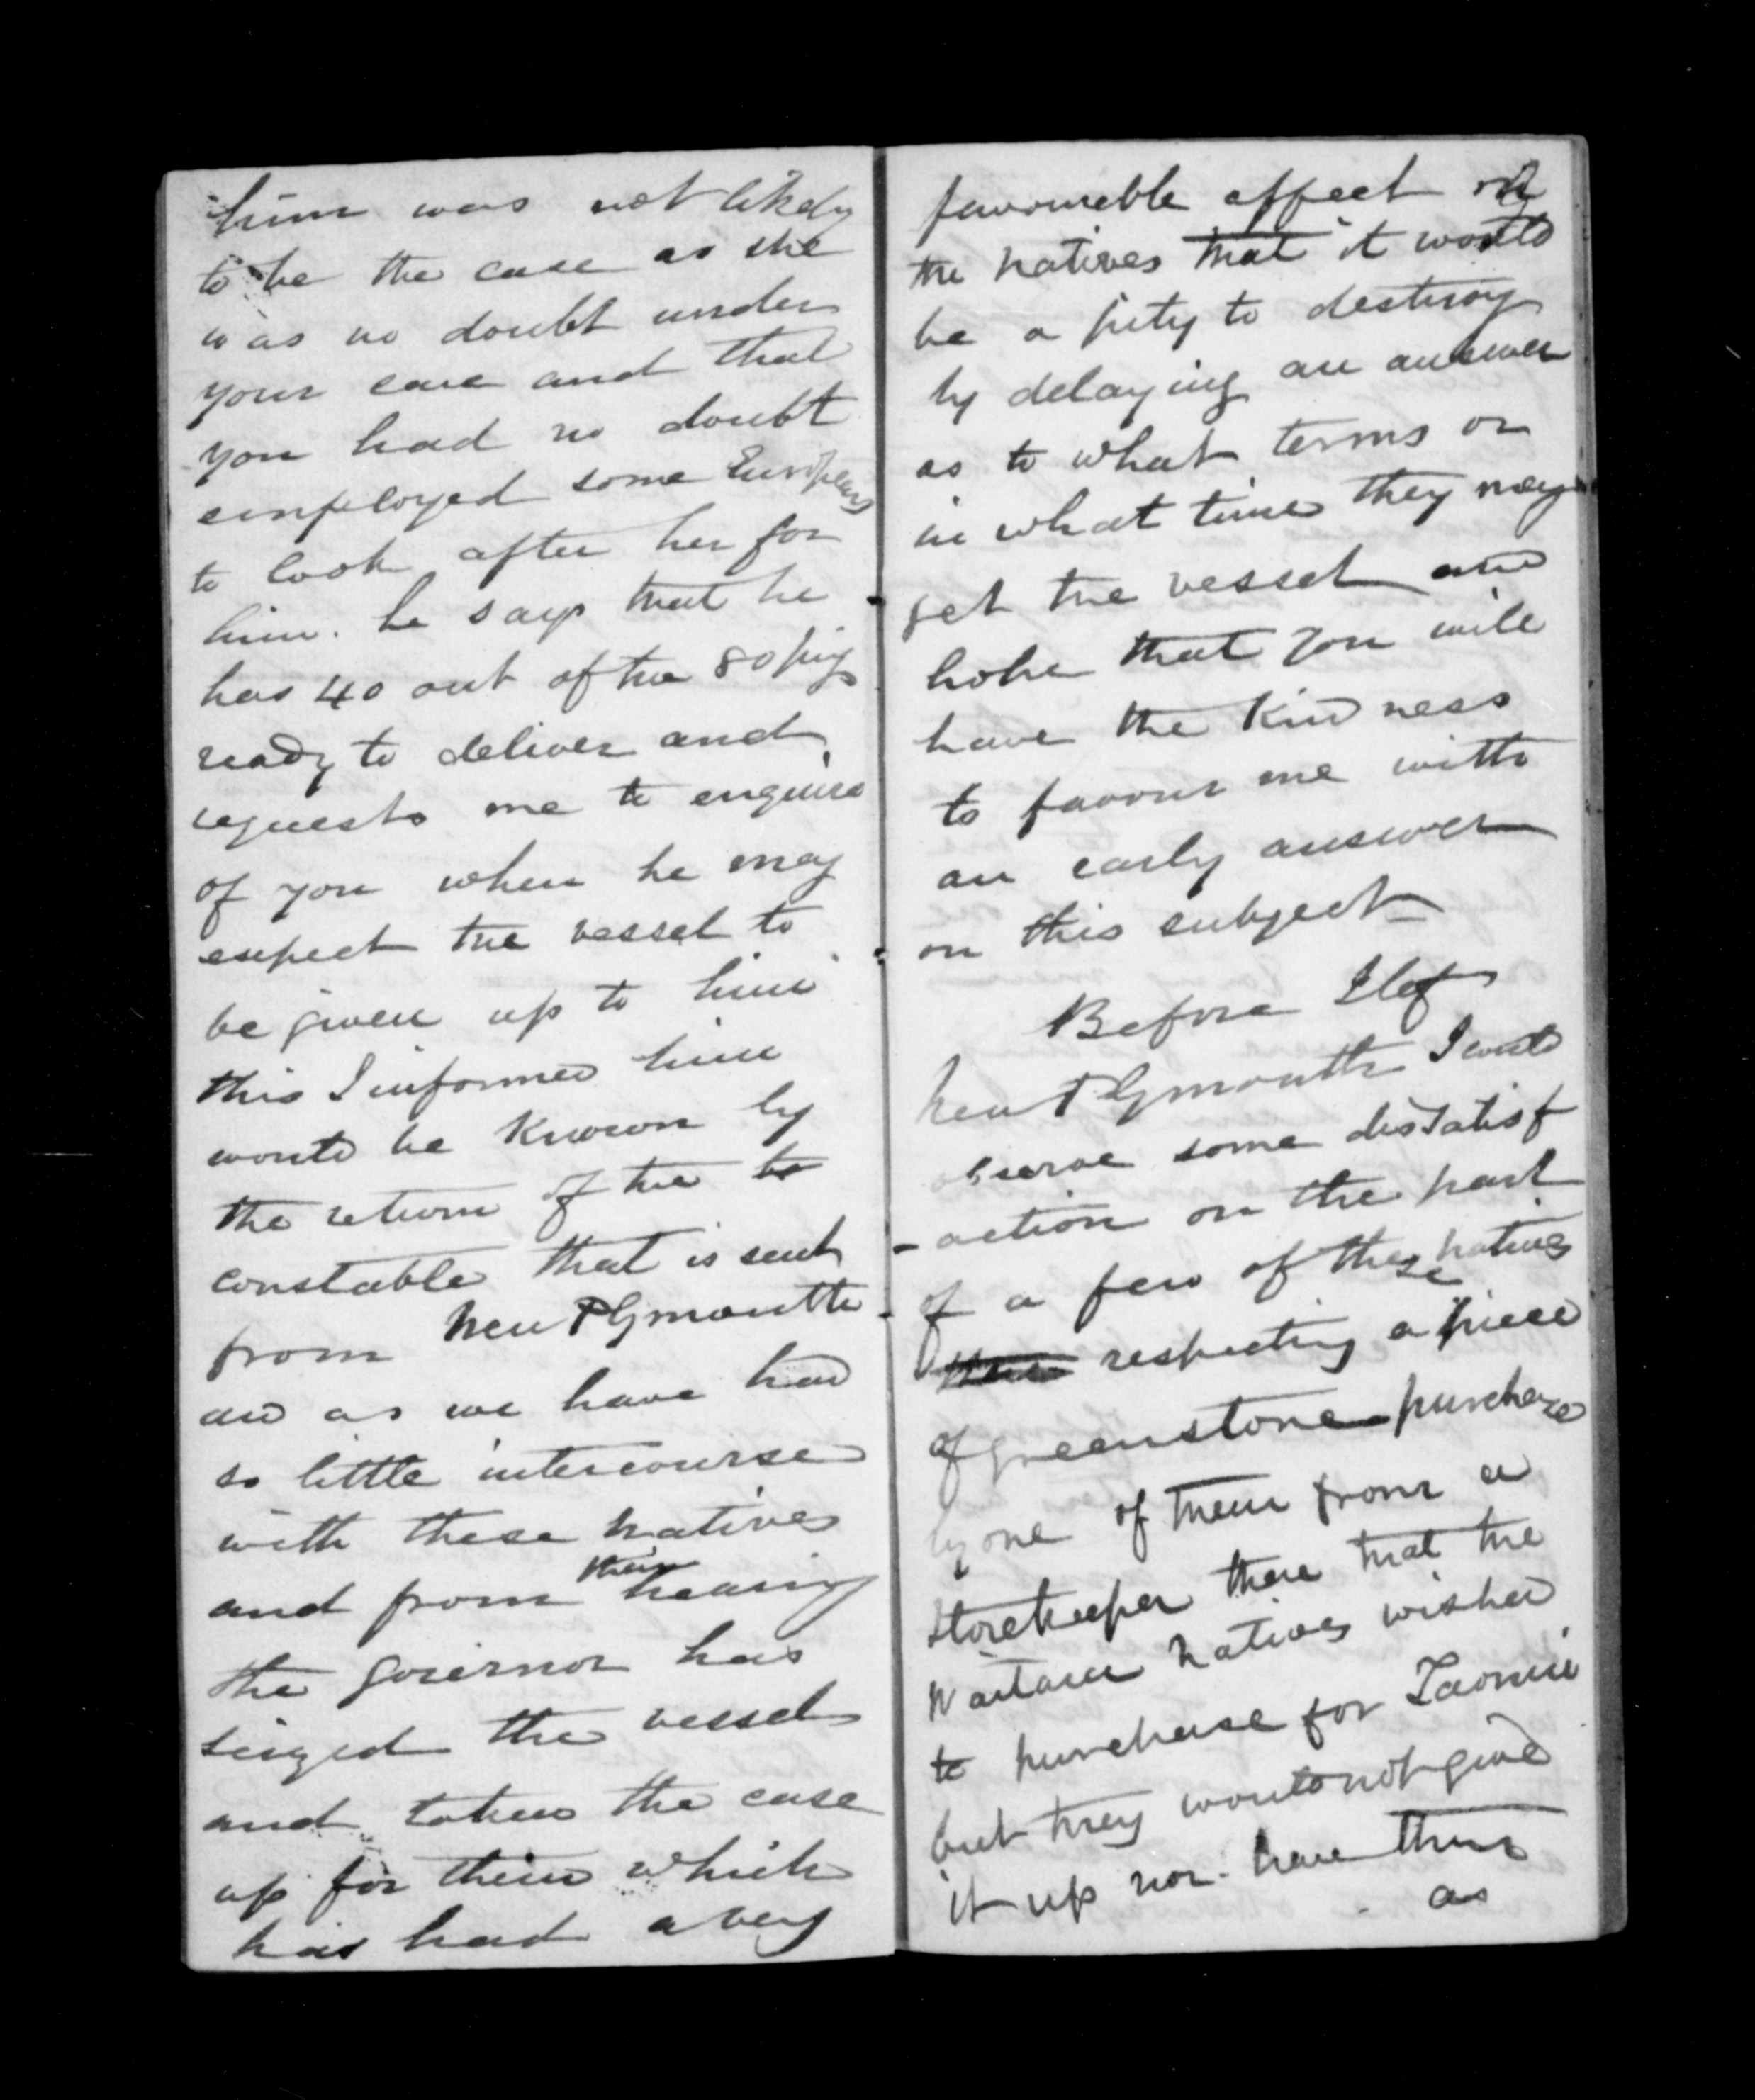 him was not likely
to be the case as she
was no doubt under
your care and that
you had no doubt
employed some Europeans
to look after her for
him. he says that he
has 40 out of the 80 pigs
ready to deliver and
requests me to enquire
of you when he may
expect the vessel to
be given up to him
this I informed him
would be known by
the return of the to
constable that is sent
from New Plymouth
and as we have had
so little intercourse
with these natives
and from their hearing
the governor has
seized the vessel
and taken the case
up for them which
has had a very
favourable effect on
the natives that it would
be a pity to destroy
by delaying an answer
as to what terms or
in what time they may
get the vessel and
hope that you will
have the kindness
to favour me with
an early answer
on this subject
Before I left
New Plymouth I could
observe some dissatisf
-action on the part
of a few of these natives
respecting a piece
of greenstone purchased
by one of them from a
Storekeeper there that the
Waitara natives wished
to purchase for Taonui
but they would not give
it up nor have they
as